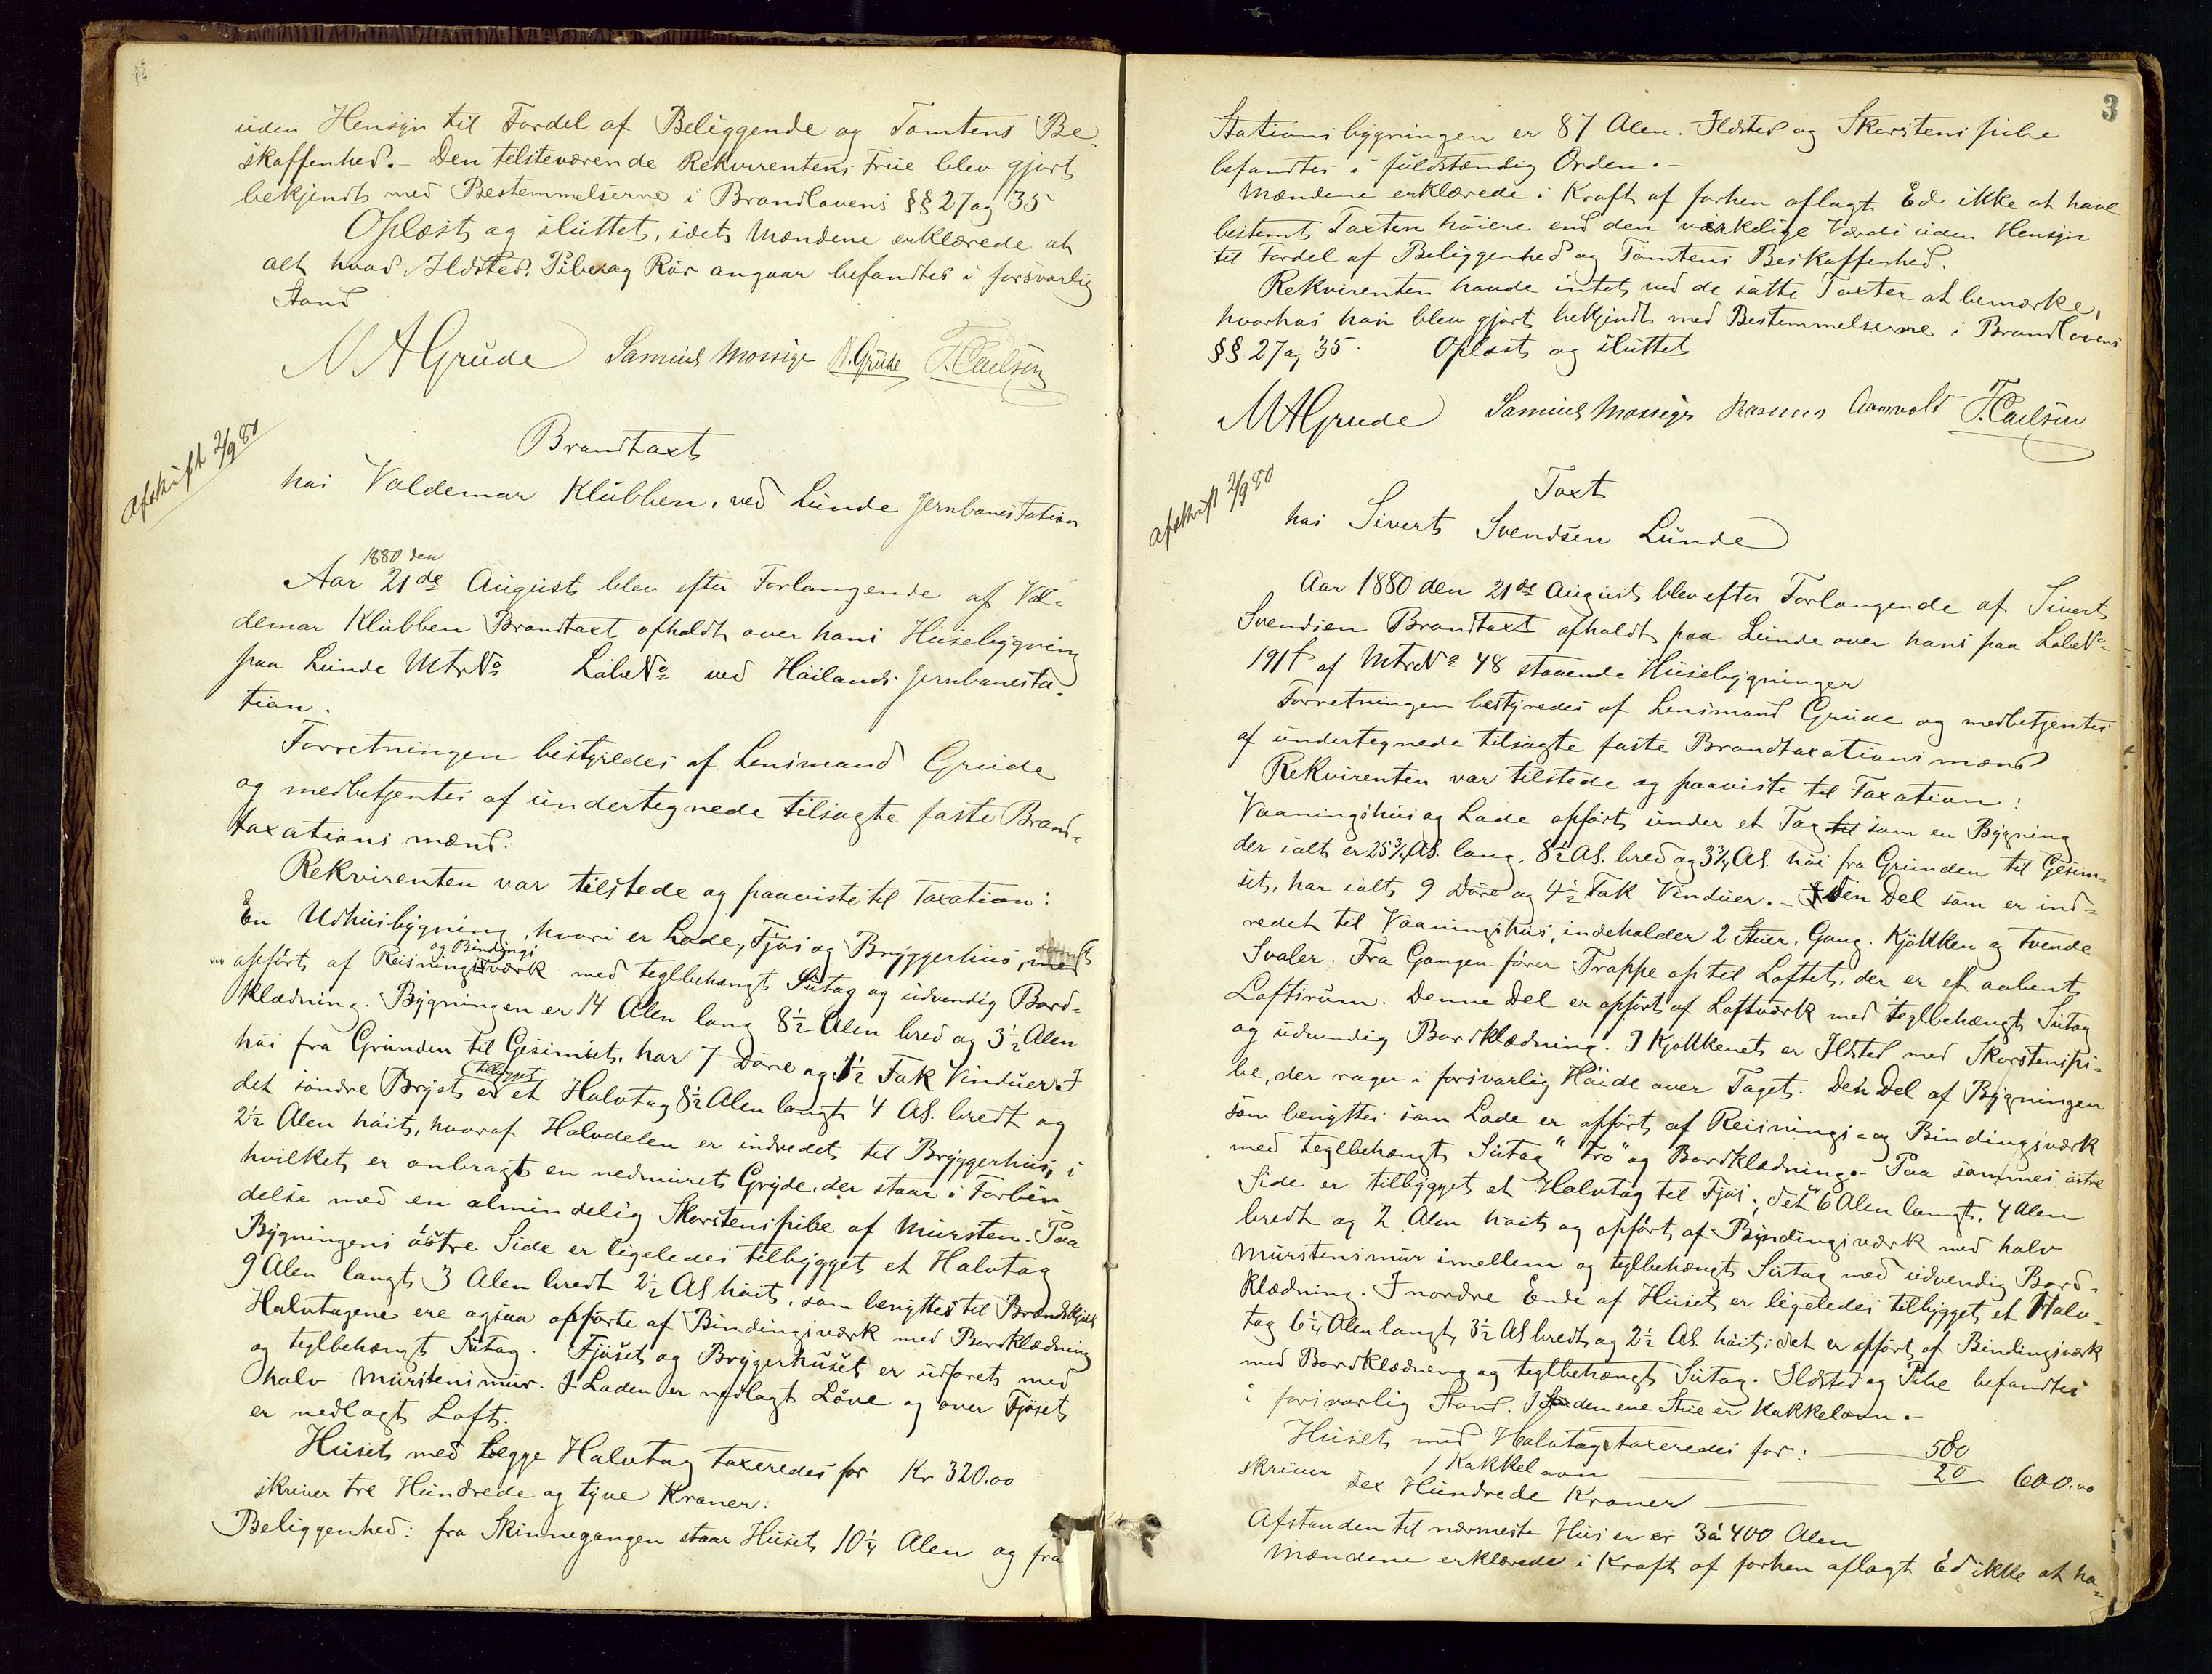 uden Hensyn til Fordel af Beliggende og Tomtens Be-
skaffenhed. - Den tilsteværende Rekvirentens Frue blev gjort
bekjendt med Bestemmelserne i Brandlovens §§ 27 og 35
Oplæst og sluttet, idet Mændene erklærede at
alt hvad Ildsted, Piber og Rør angaar befandtes i forsvarlig
Stand
M A Grude Samuel Mossige N. Grude T. Carlsen
Afskrift 2/9 80
Brandtaxt
hos Valdemar Klubben, ved Lunde Jernbanestation
1880 den
Aar 21de August blev efter Forlangende af Val-
demar Klubben Brandtaxt afholdt over hans Husebygning
paa Lunde Mtr No Løbe No ved Höilands Jernbanesta-
tion.
Forretningen bestyredes af Lensmand Grude
og medbetjentes af undertegnede tilsagte faste Brand-
taxationsmænd.
Rekvirenten var tilstede og paaviste til Taxation:
En Udhusbygning, hvori er Lade, Fjøs og Bryggerhus, med
og Bindings
opført af Reisningsværk med teglbehængt Sutag og udvendig Bord-
klædning. Bygningen er 14 Alen lang 8½ Alen bred og 3½ Alen
höi fra Grunden til Gesimset, har 7 Döre og 1½ Fak Vinduer. I
tilbygget
det söndre Bryst er et Halvtag 8½ Alen langt 4 Al. bredt og
2½ Alen höit, hvoraf Halvdelen er indredet til Bryggerhus, i
hvilket er anbragt en nedmuret Gryde, der staar i Forbin-
delse med en almindelig Skorstenspibe af Mursten. Paa
Bygningens östre Side er ligeledes tilbygget et Halvtag
9 Alen langt 3 Alen bredt 2½ Al höit, som benyttes til Brændskjul
Halvtagene ere ogsaa opførte af Bindingsværk med Bordklædning
og teglbehængt Sutag. Fjøset og Bryggerhuset er udforet med
halv Murstensmur. I Laden er nedlagt Löve og over Fjøset
er nedlagt Loft.
Huset med begge Halvtag taxeredes for Kr 320.00
skriver tre Hundrede og tyve Kroner.
Beliggenhed: fra Skinnegangen staar Huset 10¼ Alen og fra
3
Stationsbygningen er 87 Alen. Ildsted og Skorstenspibe
befandtes i fuldstændig Orden. -
Mændene erklærede i Kraft af forhen aflagt Ed ikke at have
bestemt Taxten höiere end den virkelige Værdi uden Hensyn
til Fordel af Beliggenhed og Tomtens Beskaffenhed.
Rekvirenten havde intet ved de satte Taxter at bemærke,
hvorhos han blev gjort bekjendt med Bestemmelserne i Brandlovens
§§ 27 og 35. Oplæst og sluttet
M A Grude Samuel Mossige Rasmus Aamvold T. Carlsen
Afskrift 2/9 80
Taxt
hos Sivert Svendsen Lunde
Aar 1880 den 21de August blev efter Forlangende af Sivert
Svendsen Brandtaxt afholdt paa Lunde over hans paa Løbe No
191 f af Mtr No 48 staaende Husebygninger
Forretningen bestyredes af Lensmand Grude og medbetjentes
af undertegnede tilsagte faste Brandtaxationsmænd
Rekvirenten var tilstede og paaviste til Taxation:
Vaaningshus og Lade opført under et Tag til som en Bygning
der ialt er 25¾ Al. lang, 8½ Al. bred og 3¾ Al. höi fra Grunden til Gesim-
set, har ialt 9 Döre og 4½ Fak Vinduer. - Den Del som er ind-
redet til Vaaningshus, indeholder 2 Stuer, Gang, Kjøkken og tvende
Svaler. Fra Gangen fører Trappe op til Loftet, der er et aabent
Loftsrum. Denne Del er opført af Laftværk med teglbehængt Sutag
og udvendig Bordklædning. I Kjøkkenet er Ildsted med Skorstenspi-
be, der rager i forsvarlig Höide over Taget. Den Del af Bygningen
som benyttes som Lade er opført af Reisnings- og Bindingsværk
med teglbehængt Sutag "Tro" og Bordklædning. - Paa sammes östre
Side er tilbygget et Halvtag til Fjøs; det er 6 Alen langt, 4 Alen
bredt og 2 Alen höit og opført af Bindingsværk med halv
Murstensmur imellem og teglbehængt Sutag med udvendig Bord-
klædning. I nordre Ende af Huset er ligeledes tilbygget et Halv-
tag 6¼ Alen langt, 3½ Al bredt og 2½ Al. höit; det er opført af Bindingsværk
med Bordklædning og teglbehængt Sutag. Ildsted og Pibe befandtes
i forsvarlig Stand. I den ene Stue er Kakkelovn. -
Huset med Halvtage taxeredes for: 580
1 Kakkelovn 20 600.00
skriver sex Hundrede Kroner
Afstanden til nærmeste Huse er er 3 à 400 Alen
Mændene erklærede i Kraft af forhen aflagt Ed ikke at ha-